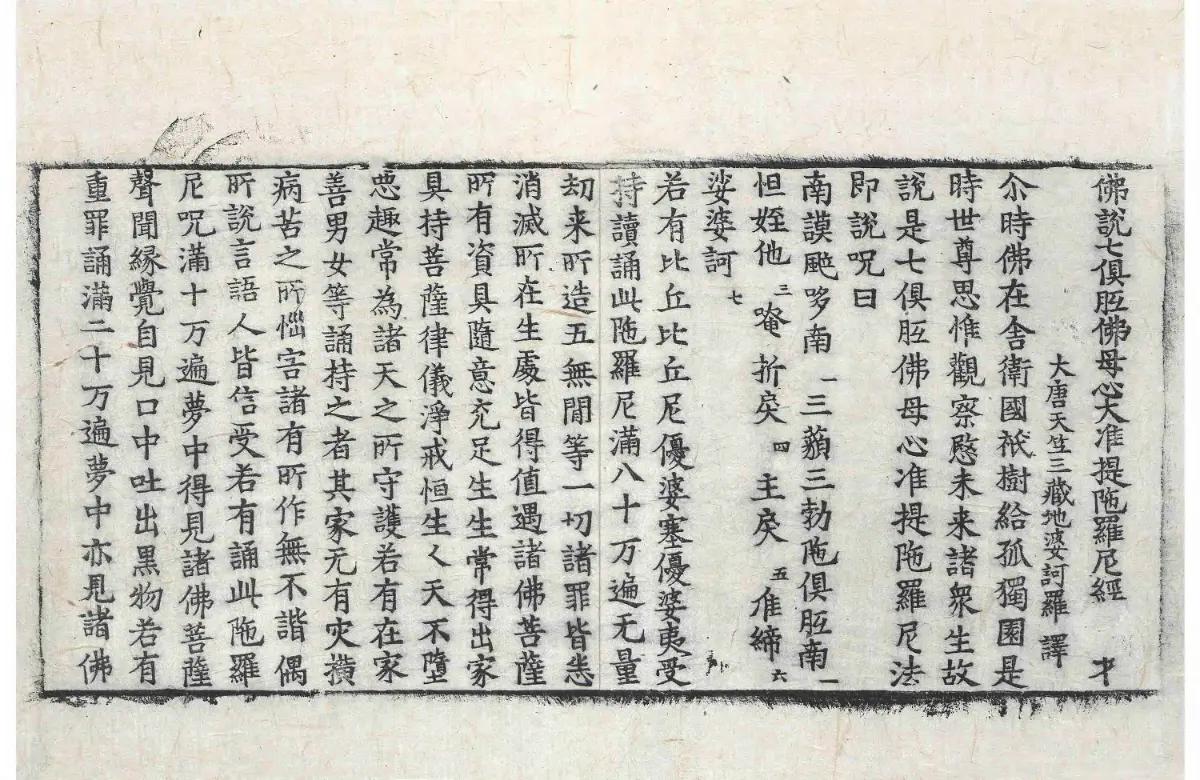 佛說七俱胝佛母心大准提陁羅尼經 才
大唐天竺三藏地婆訶羅 譯
尒時佛在舍衛國祇樹給孤獨園是
時世尊思惟觀察愍未来諸衆生故
說是七俱胝佛母心准提陁羅尼法
即說呪曰
南謨颯哆南 一 三藐三勃陁俱胝南 二
怛姪他 三 唵 折戾 四 主戾 五 准締 六
娑婆訶 七
若有比丘比丘尼優婆塞優婆夷受
持讀誦此陁羅尼滿八十万遍无量
劫来所造五無閒等一切諸罪皆悉
消滅所在生處皆得值遇諸佛菩薩
所有資具隨意充足生生常得出家
具持菩薩律儀淨戒恒生人天不墮
惡趣常為諸天之所守護若有在家
善男女等誦持之者其家无有灾攅
病苦之所惱害諸有所作無不諧偶
所說言語人皆信受若有誦此陁羅
尼呪滿十万遍夢中得見諸佛菩薩
聲聞縁覺自見口中吐出黑物若有
重罪誦滿二十万遍夢中亦見諸佛